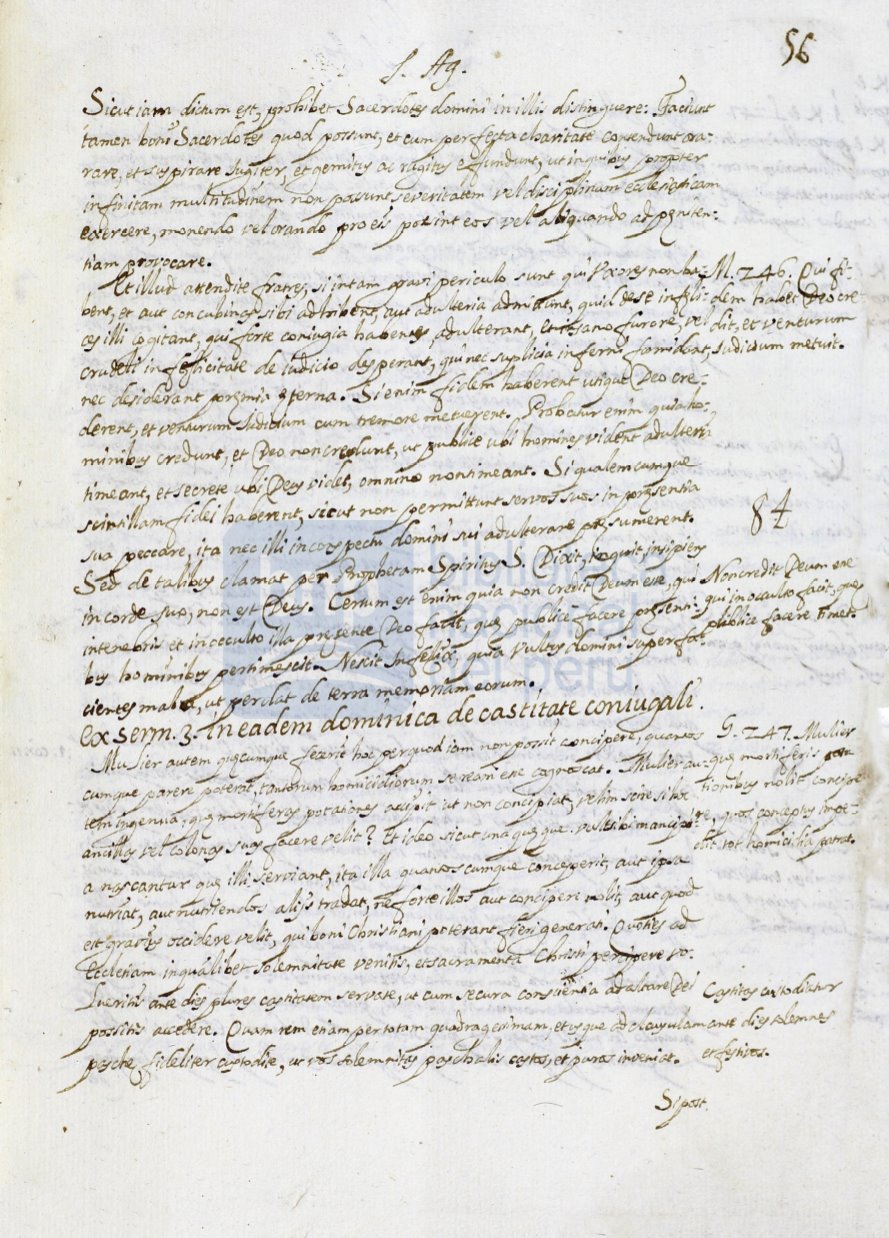 56
S. Ag.
Sicut iam dictum est, prohibet Sacerdotes domini in illis distinguere: Faciunt
tamen boni Sacerdotes quod possunt, et cum perfecta charitate contendunt ora-
rare, et suspirare iugiter, et gemitus ac rugitus effundunt, ut in quibus propter
infinitam multitudinem non possunt severitatem vel disciplinam ecclesiasticam
exercere, monendo vel orando pro eis possint eos vel aliquando ad pęniten-
tiam provocare.
Et illud attendite fratres, si in tam gravi periculo sunt qui Uxores non ha-
bent, et aut concubinas sibi adhibent, aut adulteria admittunt, quid de se infęli-
ces illi cogitant, qui forte coniugia habentes, adulterant, et insano furore, vel
crudeli infęlicitate de iudicio desperant, qui nec suplicia inferni formidant,
nec desiderant pręmia ęterna. Si enim fidem haberent utique Deo cre-
derent, et venturum Iudicium cum tremore metuerent. Probatur enim quia ho-
minibus credunt, et Deo non credunt, ut publice ubi homines vident adulteri
timeant, et secrete ubi Deus videt, omnino non timeant. Si qualemcumque
scintillam fidei haberent, sicut non permittunt servos suos in pręsentia
sua peccare, ita nec illi in conspectu domini sui adulterare pręsumerent.
Sed de talibus clamat per Prophetam Spiritus S. Dixit, inquit, insipiens
in corde suo, non est Deus. Certum est enim quia non credit Deum esse, qui
in tenebris et in occulto illa pręsente Deo facit, quę publice facere pręsenti-
bus hominibus pertimescit. Nescit Infęlix, quia Vultus domini super fa-
cientes mala, ut perdat de terra memoriam eorum.
M. 246. Qui fi-
dem habet Deo cre-
dit, et venturum
Iudicium metuit.
84
Non credit Deum esse
qui in occulto facit, quę
publice facere timet.
Ex serm. 3. In eadem dominica de castitate coniugali.
Mulier autem quęcumque fecerit hoc per quod iam non possit concipere, quantos
cumque parere poterat, tantorum homicidiorum se ream esse cognoscat. Mulier au-
tem ingenua, quę mortiferas potationes accipit ut non concipiat, velim scire si hoc
ancillas vel colonas suas facere velit? Et ideo sicut una quęque vult sibi mancipi-
a nascantur quę illi serviant, ita illa quantos cumque conceperit, aut ipsa
nutriat, aut nutriendos alijs tradat, ne forte illos aut concipere nolit, aut quod
est gravius occidere velit, qui boni Christiani poterant fieri generari. Quoties ad
Ecclesiam in qualibet solemnitate venitis, et sacramenta Christi percipere vo-
lueritis ante dies plures castitatem servate, ut cum secura conscientia ad altare Dei
possitis accedere. Quam rem etiam per totam quadragesimam, et usque ad clausulam
paschę fideliter custodite, ut vos solemnitas paschalis castos, et puros inveniat.
G. 247. Mulier
quę mortiferis
tionibus nolit concipe
re, quos conceptus impe-
dit tot homicidia patrat.
Castitas custodiatur
ante dies solemnes
et festivos.
Si post.